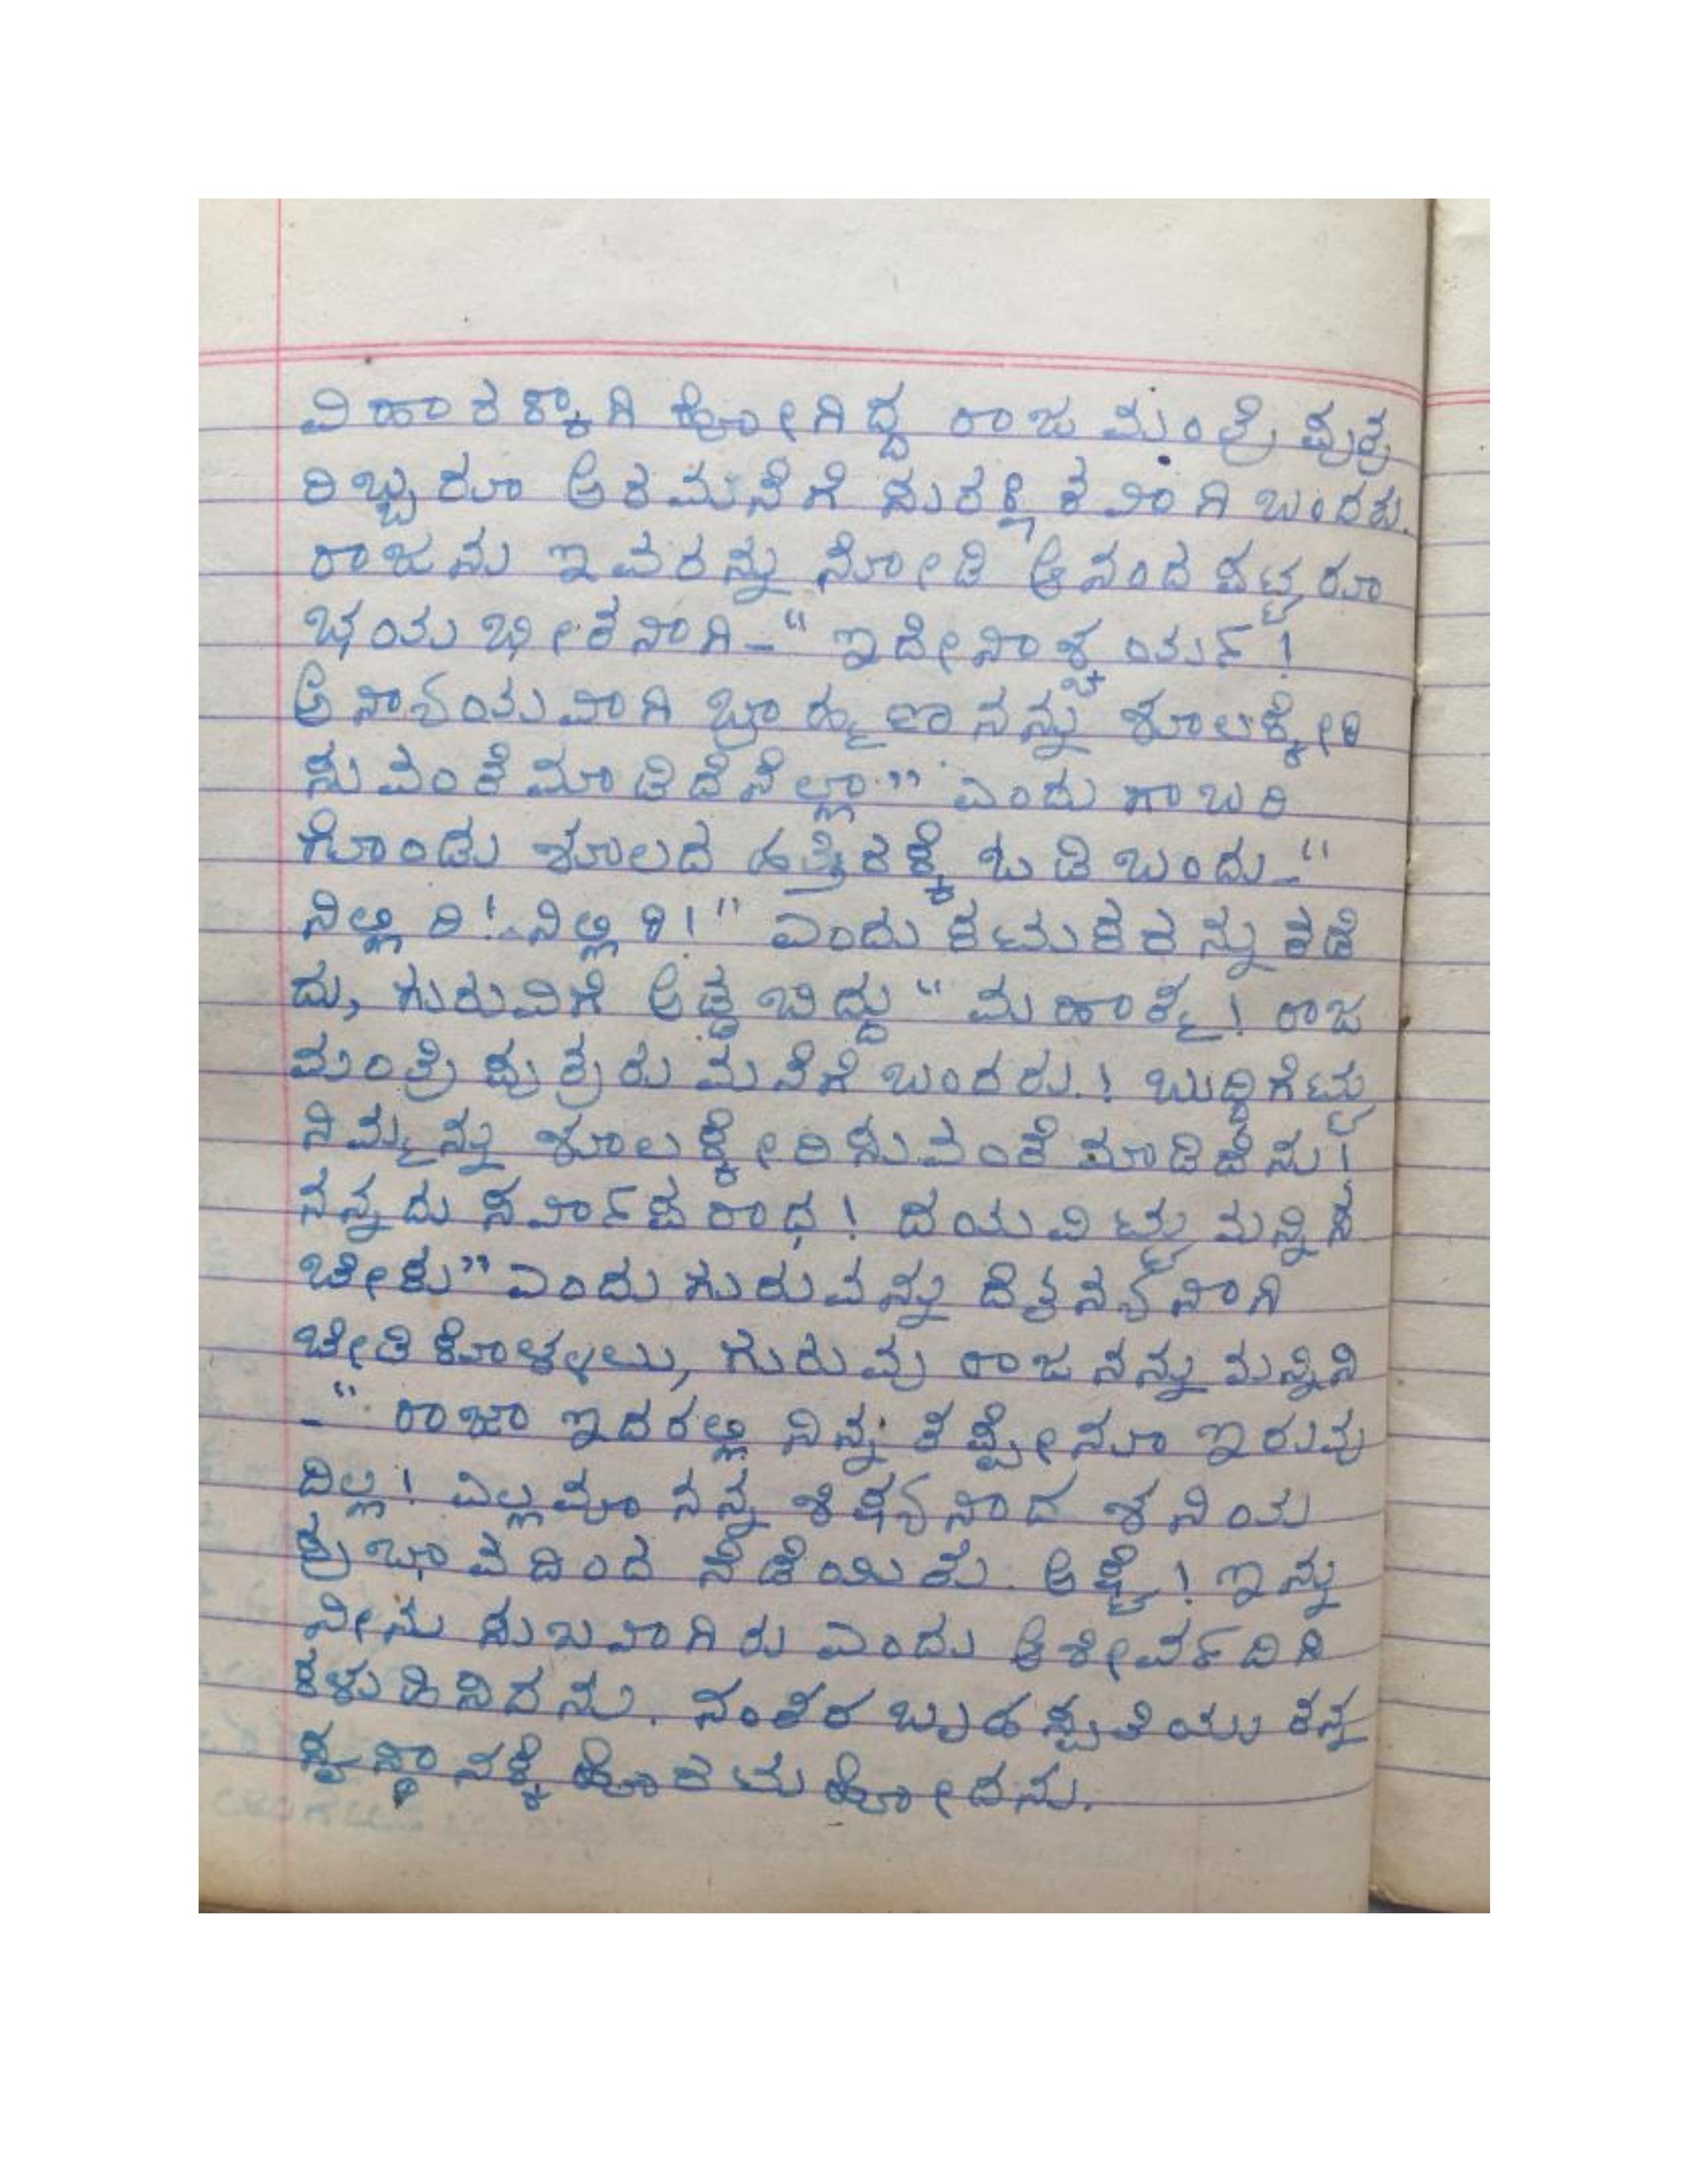 ವಿಹಾರಕ್ಕಾಗಿ ಹೋಗಿದ್ದ ರಾಜ ಮಂತ್ರಿ ಪುತ್ರ
ರಿಬ್ಬರೂ ಅರಮನೆಗೆ ಸುರಕ್ಷಿತವಾಗಿ ಬಂದರು.
ರಾಜನು ಇವರನ್ನು ನೋಡಿ ಆನಂದ ಪಟ್ಟರೂ
ಭಯಭೀತನಾಗಿ–“ ಇದೇನಾಶ್ಚರ್ಯ!
ಅನ್ಯಾಯವಾಗಿ ಬ್ರಾಹ್ಮಣನನ್ನು ಶೂಲಕ್ಕೇರಿ
ಸುವಂತೆ ಮಾಡಿದೆನೆಲ್ಲಾ.” ಎಂದು ಗಾಬರಿ
ಗೊಂಡು ಶೂಲದ ಹತ್ತಿರಕ್ಕೆ ಓಡಿ ಬಂದು–“
ನಿಲ್ಲಿರಿ! ನಿಲ್ಲಿರಿ!” ಎಂದು ಕಟುಕರನ್ನು ತಡೆ
ದು, ಗುರುವಿಗೆ ಅಡ್ಡ ಬಿದ್ದು “ ಮಹಾತ್ಮ! ರಾಜ
ಮಂತ್ರಿ ಪುತ್ರರು ಮನೆಗೆ ಬಂದರು.! ಬುದ್ಧಿಗೆಟ್ಟು
ನಿಮ್ಮನ್ನು ಶೂಲಕ್ಕೇರಿಸುವಂತೆ ಮಾಡಿದೆನು!
ನನ್ನದು ಸರ್ವಾಪರಾಧ! ದಯವಿಟ್ಟು ಮನ್ನಿಸ
ಬೇಕು” ಎಂದು ಗುರುವನ್ನು ದೈನ್ಯನಾಗಿ
ಬೇಡಿಕೊಳ್ಳಲು, ಗುರುವು ರಾಜನನ್ನು ಮನ್ನಿಸಿ
–“ ರಾಜಾ ಇದರಲ್ಲಿ ನಿನ್ನ ತಪ್ಪೇನೂ ಇರುವು
ದಿಲ್ಲ! ಎಲ್ಲವೂ ನನ್ನ ಶಿಷ್ಯನಾದ ಶನಿಯ
ಪ್ರಭಾವದಿಂದ ನೆಡೆಯಿತು. ಆಕ್ಷೈ! ಇನ್ನು
ನೀನು ಸುಖವಾಗಿರು ಎಂದು ಆಶೀರ್ವದಿಸಿ
ಕಳುಹಿಸಿದನು. ನಂತರ ಬೃಹಸ್ಪತಿಯು ತನ್ನ
ಸ್ವಸ್ಥಾನಕ್ಕೆ ಹೊರಟು ಹೋದನು.